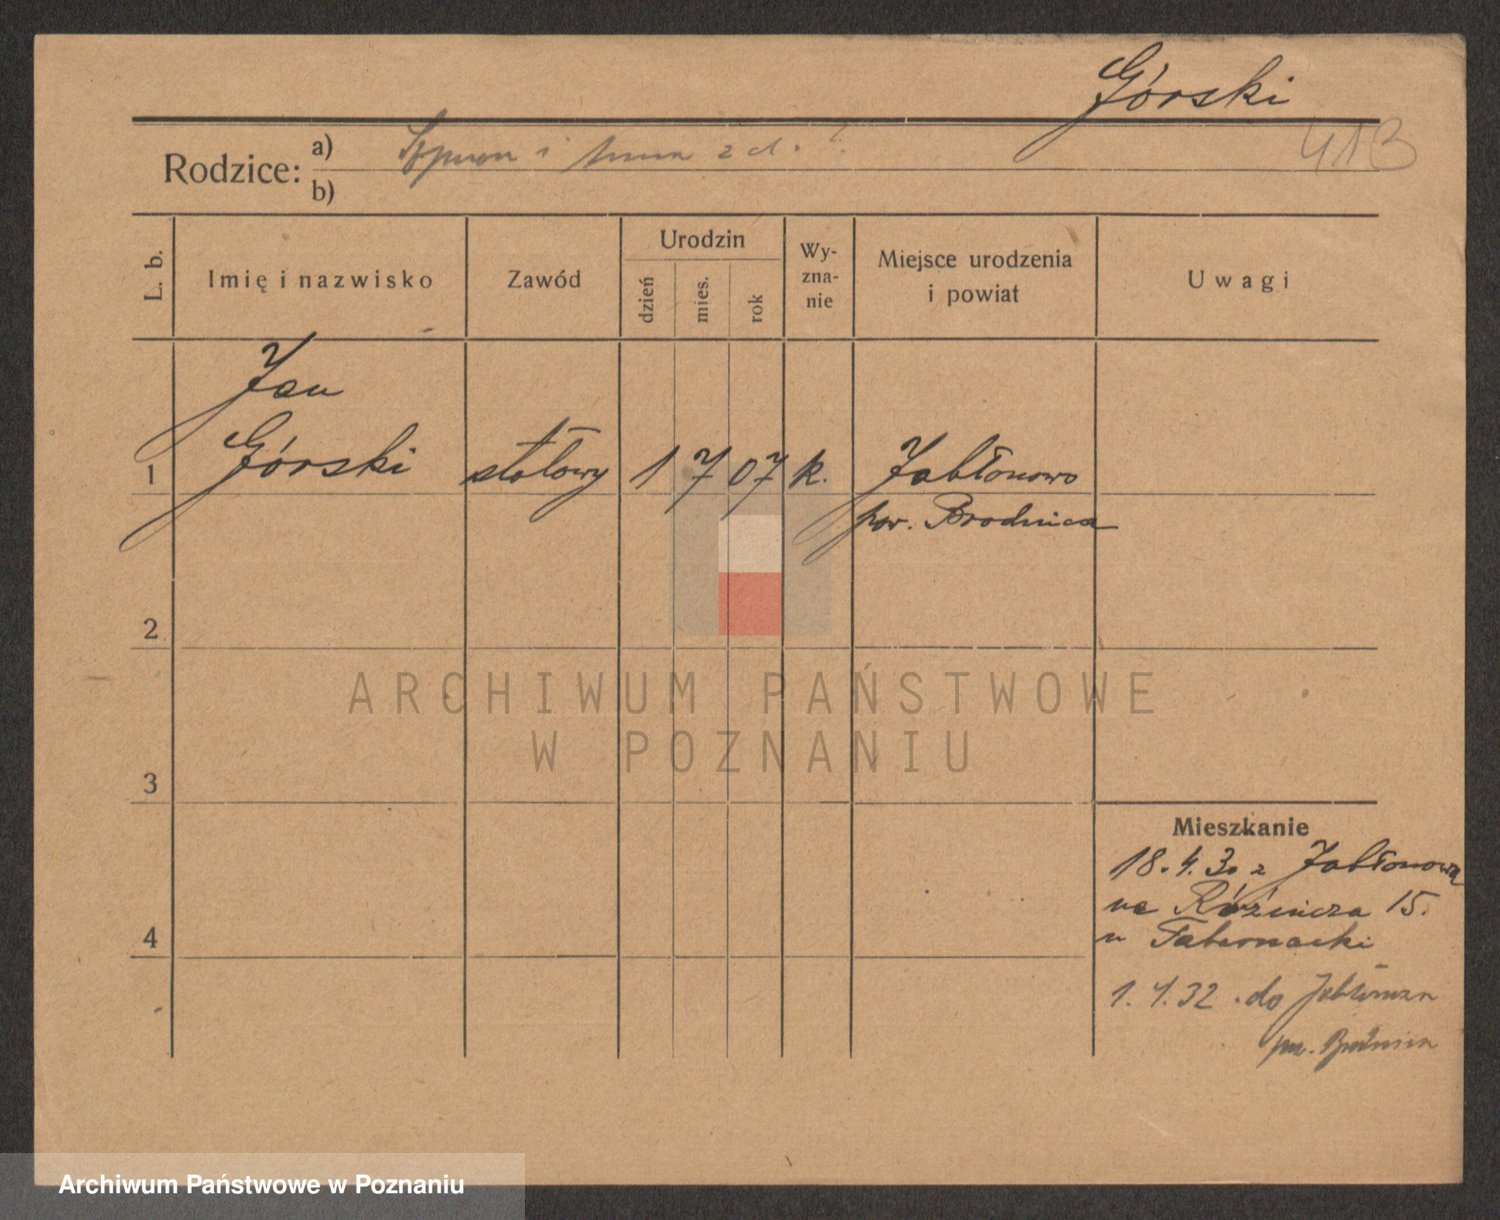 Górski
413
Rodzice: a)
i Anna z d. ?
b)
L. b.
Imię i nazwisko
Zawód
Urodzin
dzień
mies.
rok
Wy-
zna-
nie
Miejsce urodzenia
i powiat
Uwagi
Jan
1 Górski stołowy 1 7 07 k. Jabłonowo
pow. Brodnica
2
ARCHIWUM PAŃSTWOWE
W POZNANIU
3
Mieszkanie
18.4.30 z Jabłonowa
na 15.
u
4
1.4.32 do
Archiwum Państwowe w Poznaniu